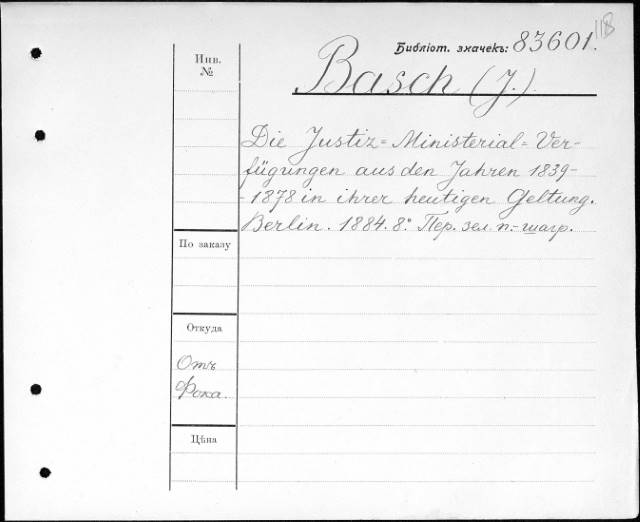 118
Библіот. значекъ: 83601.
Basch (J.)
Инв.
№
Die Justiz=Ministerial=Ver-
fügungen aus den Jahren 1839-
-1878 in ihrer heutigen Geltung.
Berlin. 1884. 8.° Пер. зел. п.-шагр.
По заказу
Откуда
Отъ
Фока.
Цѣна